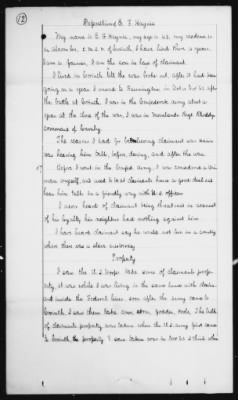 (12)
Deposition E. F. Haynie
My name is E. F. Haynie, my age is 43, my residence is
in Alcorn Co., 5 m. S. W. of Corinth, I have lived there 12 years.
I am a farmer, I am the son in law of claimant.
I lived in Corinth till the war broke out, after it had been
going on a year I moved to
the battle at Corinth, I was in the Confederate army about a
year at the close of the war, I was in Regt
command of Cavalry.
The reason I had for claimant was
was hearing him talk, before, during, and after the war.
Before I went in the Confed. army I was considered a Union
man myself, and used to be at claimants house a good deal and
hear him talk in a friendly way with U.S. officers
I never heard of claimant being threatened on account
of his loyalty his neighbors had nothing against him
I have heard claimant say he would not live in a country
where there was a slave autocracy.
Property
I saw the U.S. troops take some of claimants prop-
erty, it was while I was living in the same house with
and inside the Federal lines soon after the army came to
Corinth, I saw them take corn, fodder, rails. The bulk
of claimants property was taken when the U.S. army first came
to Corinth, the property I saw taken was in Dec 62 I think when